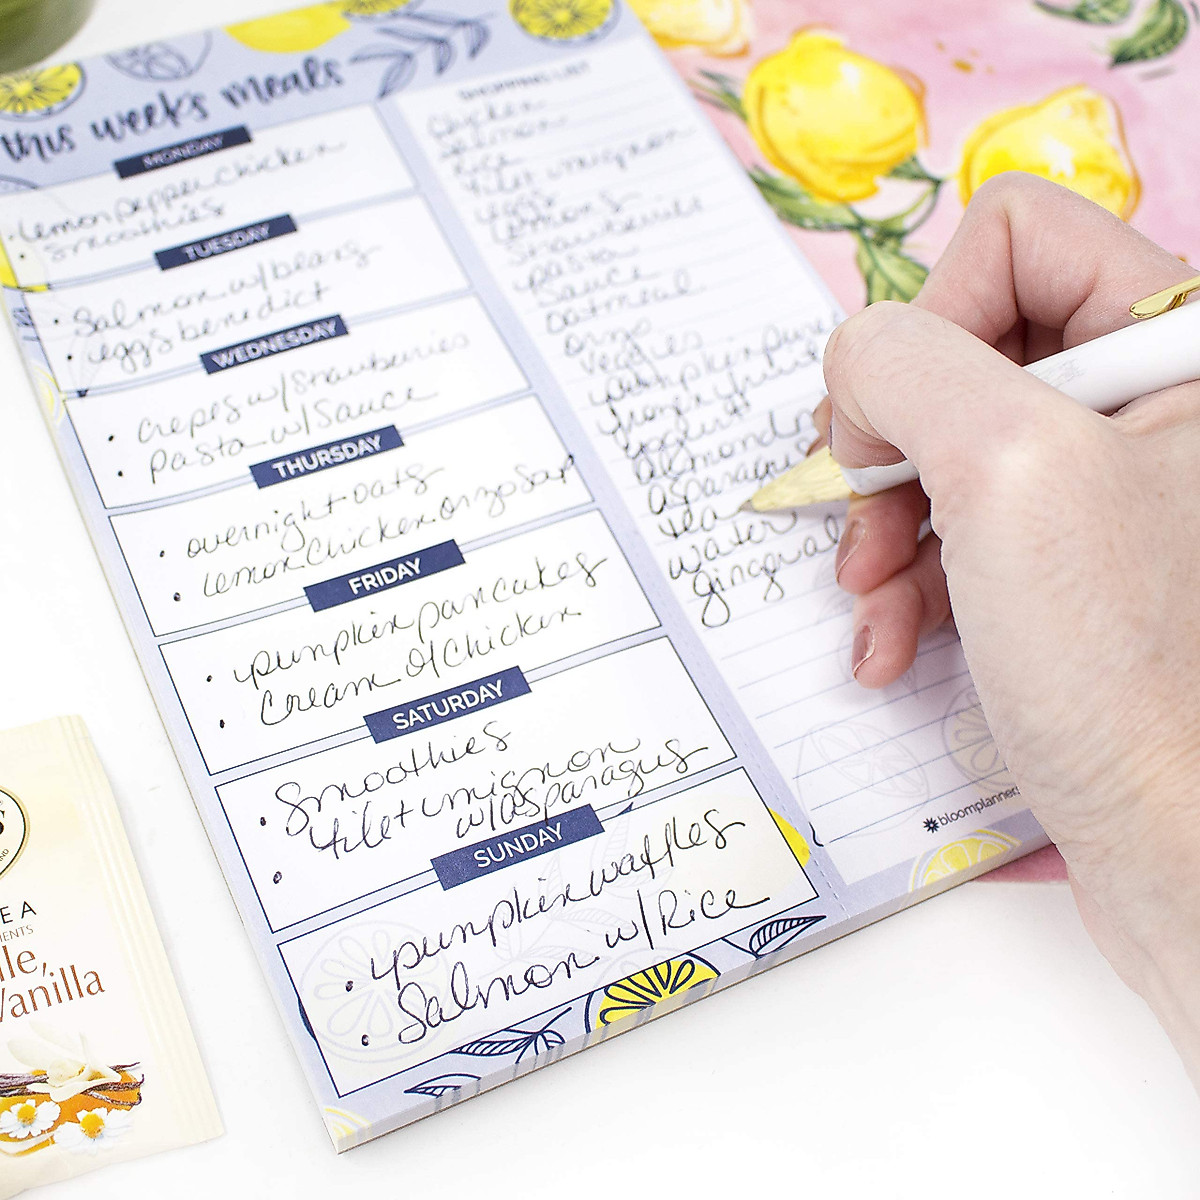 this weeks meals
MONDAY
lemon pepper chicken
smoothies
TUESDAY
Salmon w/beans
eggs benedict
WEDNESDAY
crepes w/strawberries
pasta w/sauce
THURSDAY
overnight oats
lemon chicken orzo soup
FRIDAY
pumpkin pancakes
cream of chicken
SATURDAY
Smoothies
filet mignon
w/asparagus
SUNDAY
pumpkin waffles
Salmon w/Rice
SHOPPING LIST
chicken
salmon
Rice
filet mignon
eggs
lemons
strawberries
pasta
sauce
oatmeal
orzo
veggies
pumpkin puree
frozen fruit
yogurt
almond
asparagus
tea
water
ginger al
bloomplanners
S
EA
ENTS
ile,
Vanilla